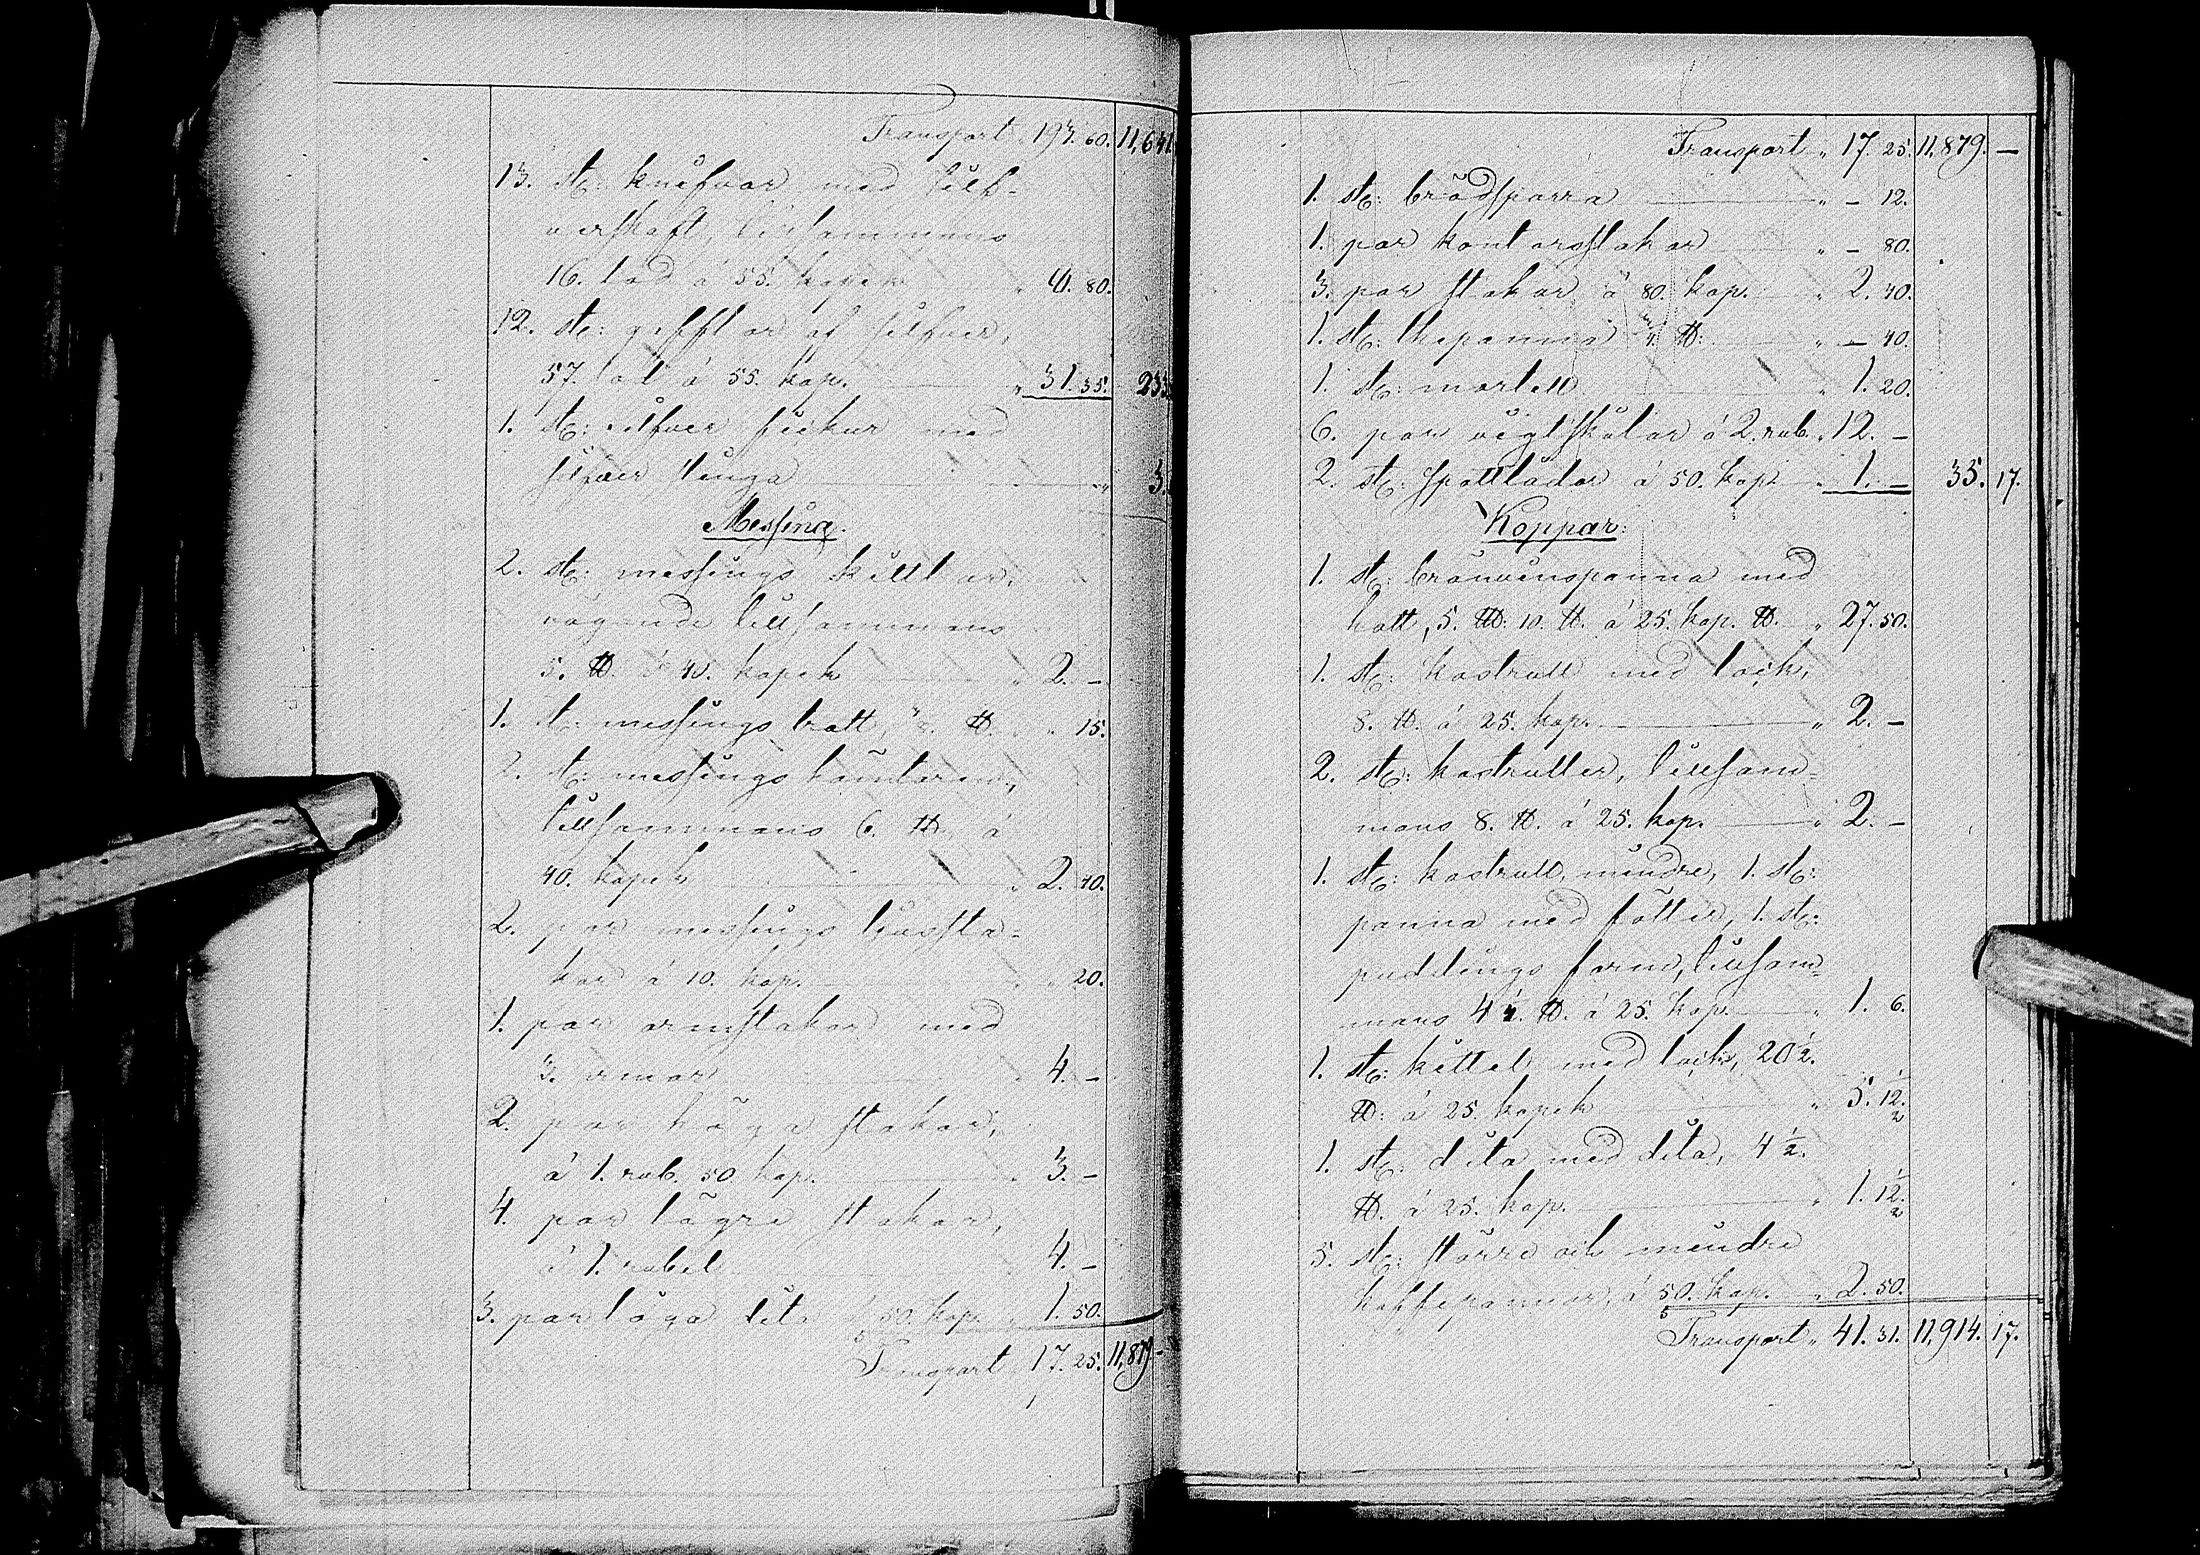 Transport „ 193. 60. 11,641.
13. st: knifvar med silf-
verskaft, tillsammans
16. lod á 55. kopek „ 8. 80.
12. st: gafflar af silfver,
57. lod á 55. kop. „ 31. 35. 233.
1. st: silfver sickur med
silfver slinga „ 3.
Messing.
2. st: messings kittlar,
vägande tillsammans
5. ℔. á 40. kopek „ 2. –
1. st: messings tratt, ℔. „ „ 15.
2. st: messings hämtaren,
tillsammans 6. ℔. á
40. kopek „ 2. 40.
2. par messings ljussta-
kar á 10. kop. „ „ 20.
1. par armstakar med
3. armar „ 4. –
2. par höga stakar,
á 1. rub. 50 kop. „ 3. –
4. par lägre stakar,
á 1. rubel „ 4. –
3. par låga dito á 50. kop. „ 1. 50.
Transport „ 17. 25. 11,879 –
Transport „ 17. 25. 11,879. –
1. st: brödsparra „ – 12.
1. par kontorsstakar „ – 80.
3. par stakar á 80. kop. „ 2. 40.
1. st: thepanna ℔: „ – 40.
1. st: mortell „ 1. 20.
6. par vigtskålar á 2. rub. „ 12. –
2. st: spottlådor á 50. kop. „ 1. – 35. 17.
Koppar:
1. st: bränvinspanna med
hatt, 5. L℔. 10. ℔. á 25. kop. ℔. „ 27. 50.
1. st: kastrull med lock,
8. ℔. á 25. kop. „ 2. –
2. st: kastruller, tillsam-
mans 8. ℔. á 25. kop. „ 2. –
1. st: kastrull, mindre, 1. st:
panna med fötter, 1. st:
puddings form, tillsam-
mans 4 1/4. ℔. á 25. kop. „ 1. 6.
1. st: kittel med lock, 20 1/2.
℔: á 25. kopek „ 5. 12 1/2
1. st: dito med dito, 4 1/2.
℔. á 25. kop. „ 1. 12 1/2
5. st: större och mindre
kaffepannor, á 50. kop. „ 2. 50.
Transport „ 41. 31. 11,914. 17.